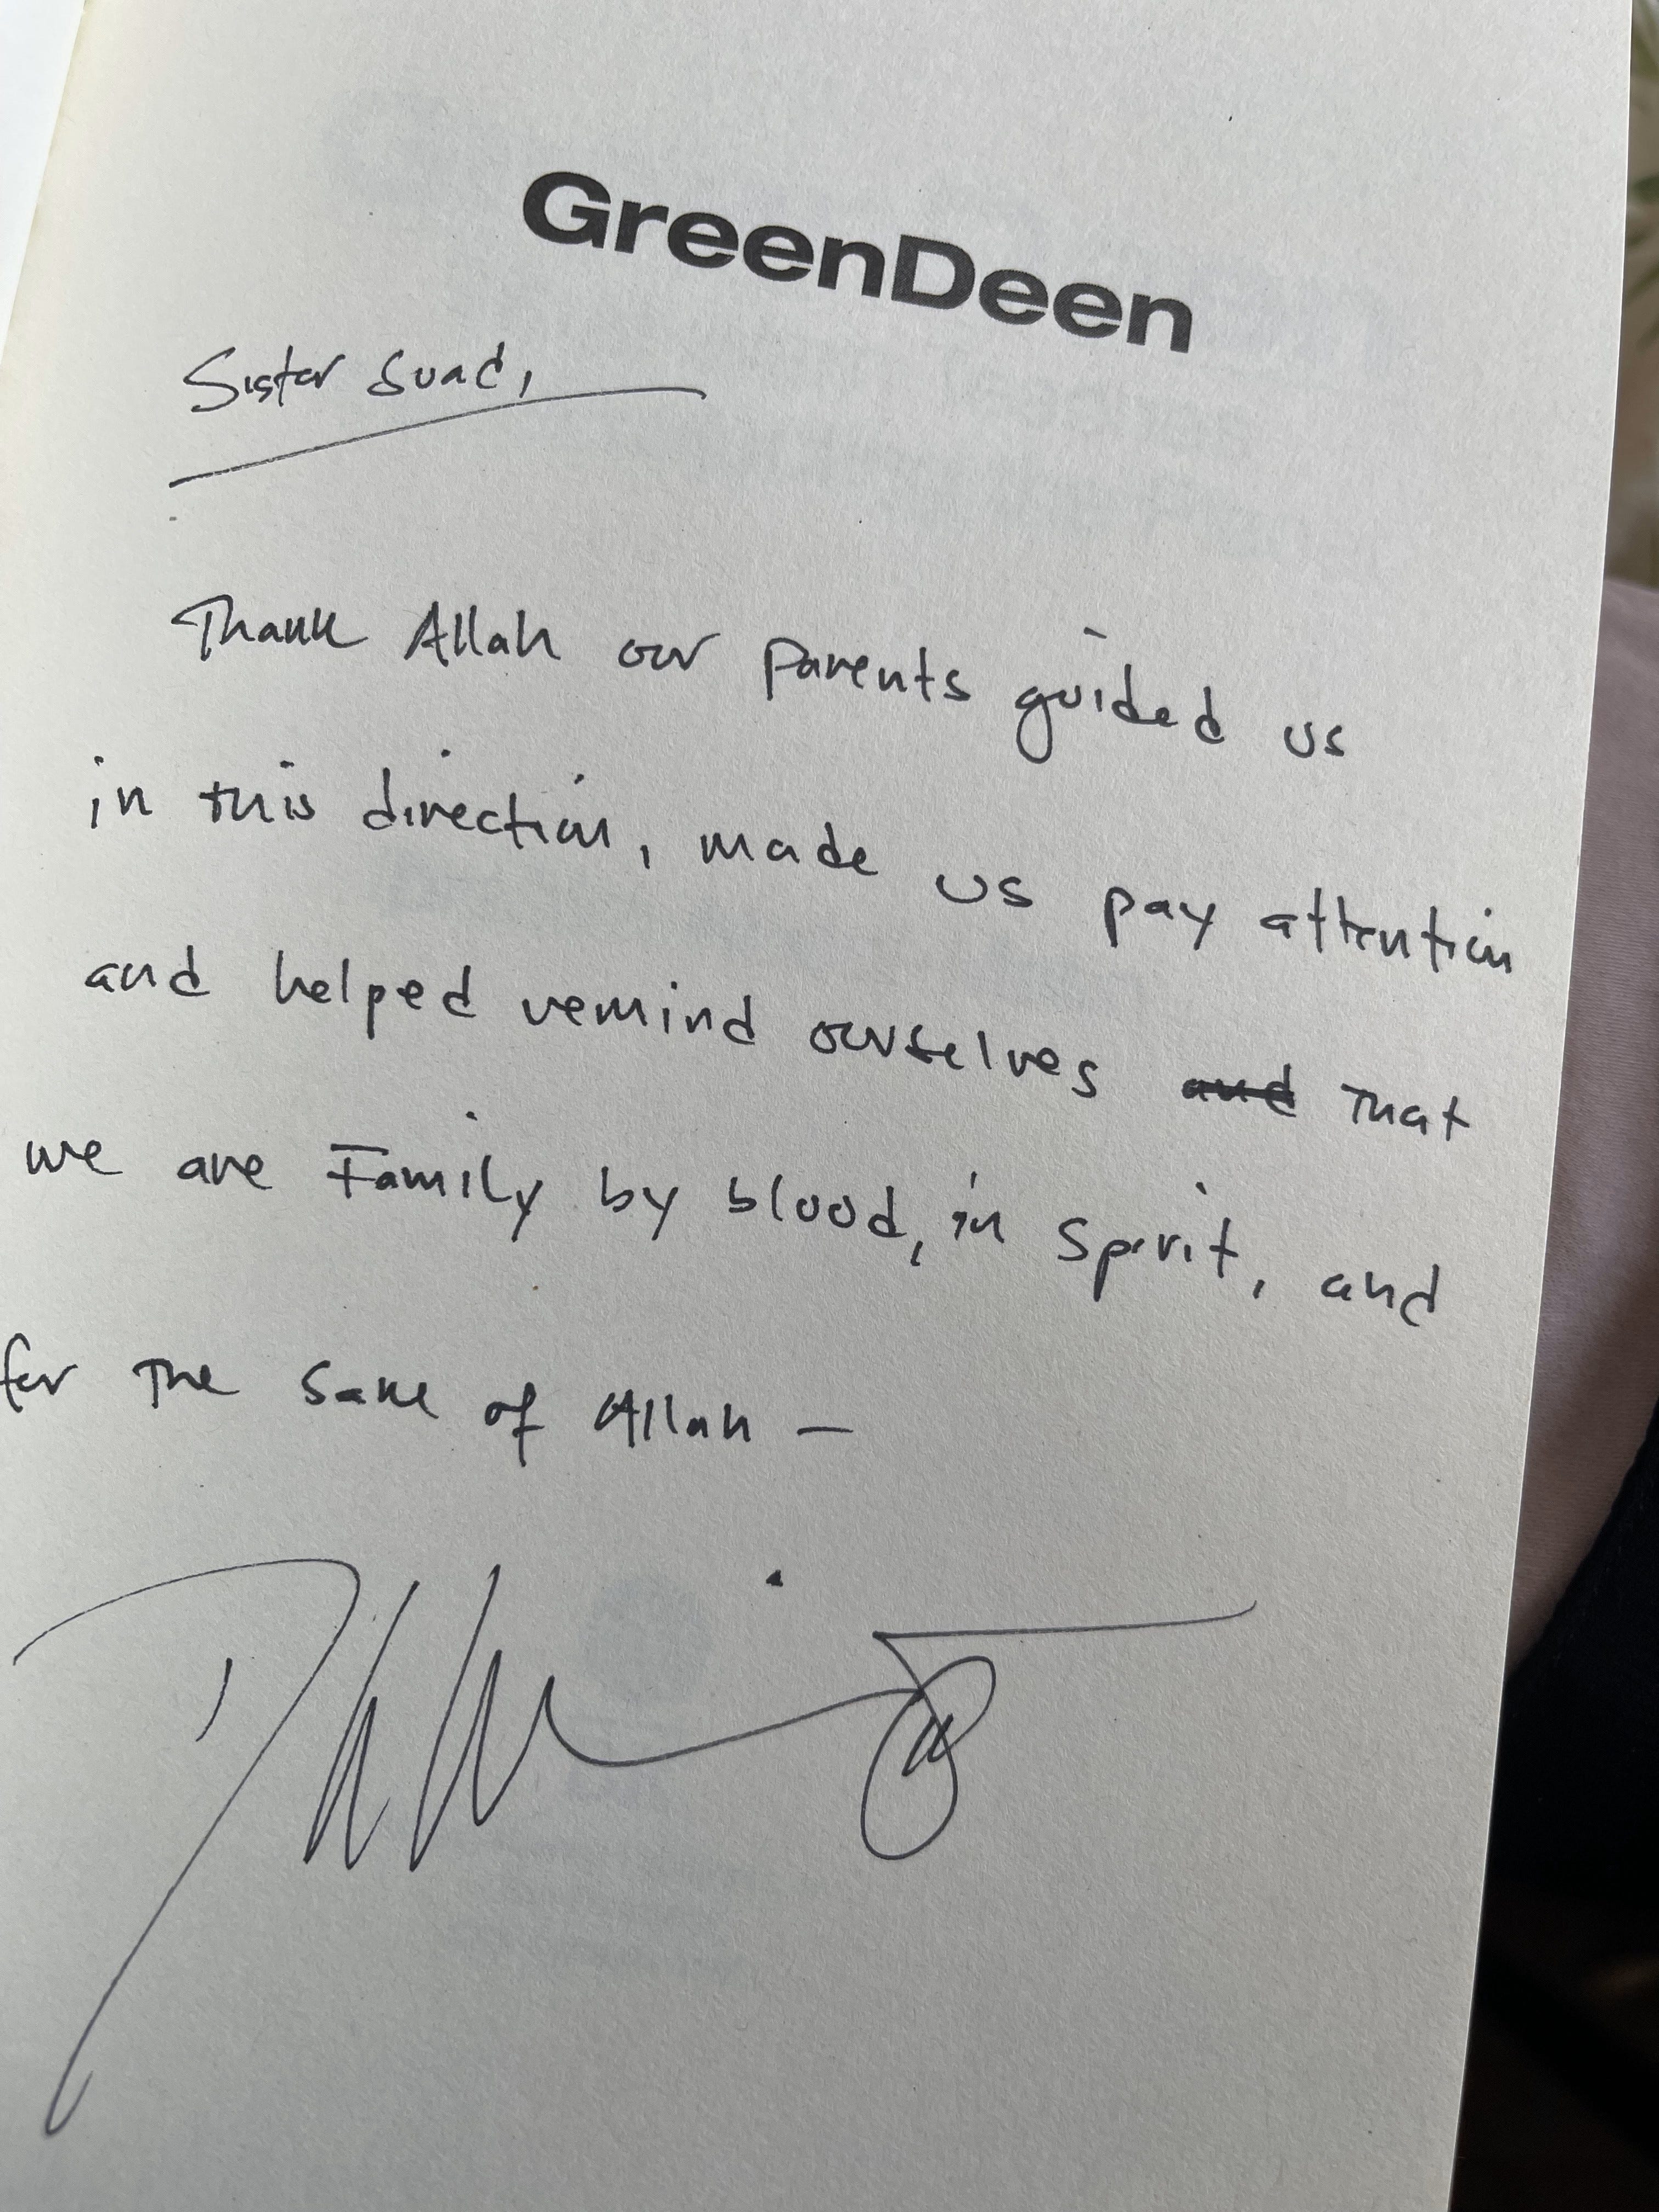 GreenDeen
Sister Suad,
Thank Allah our parents guided us
in this direction, made us pay attention
and helped remind ourselves and that
we are Family by blood, in Spirit, and
for the sake of Allah —